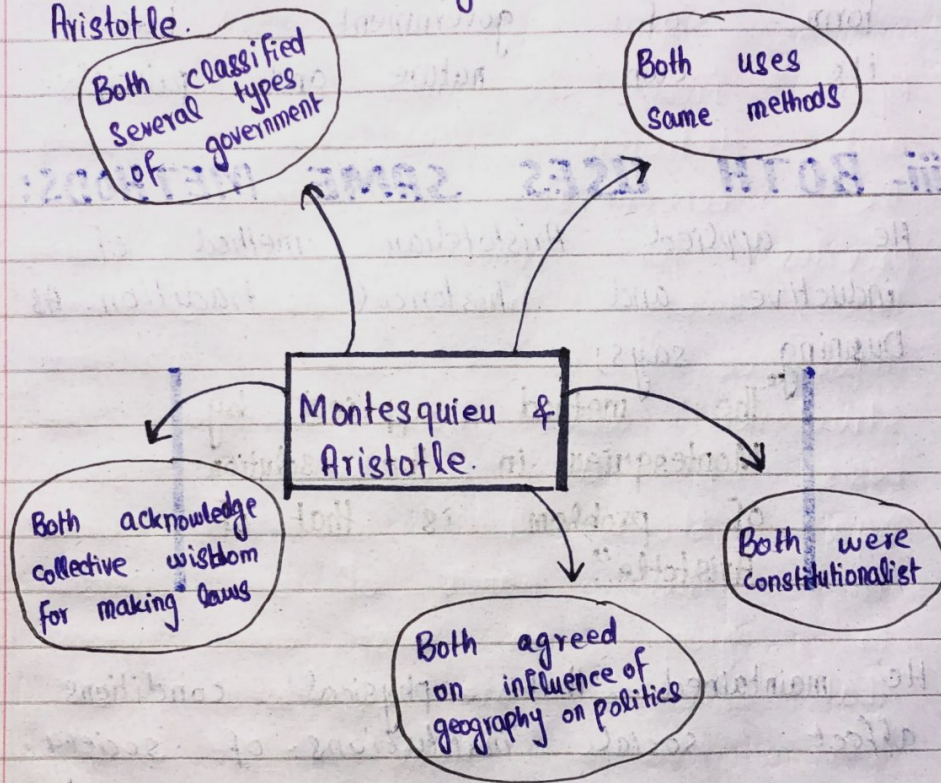 Aristotle.
Both classified
several types
of government
Both uses
same methods
Montesquieu &
Aristotle.
Both acknowledge
collective wisdom
for making laws
Both were
constitutionalist
Both agreed
on influence of
geography on politics